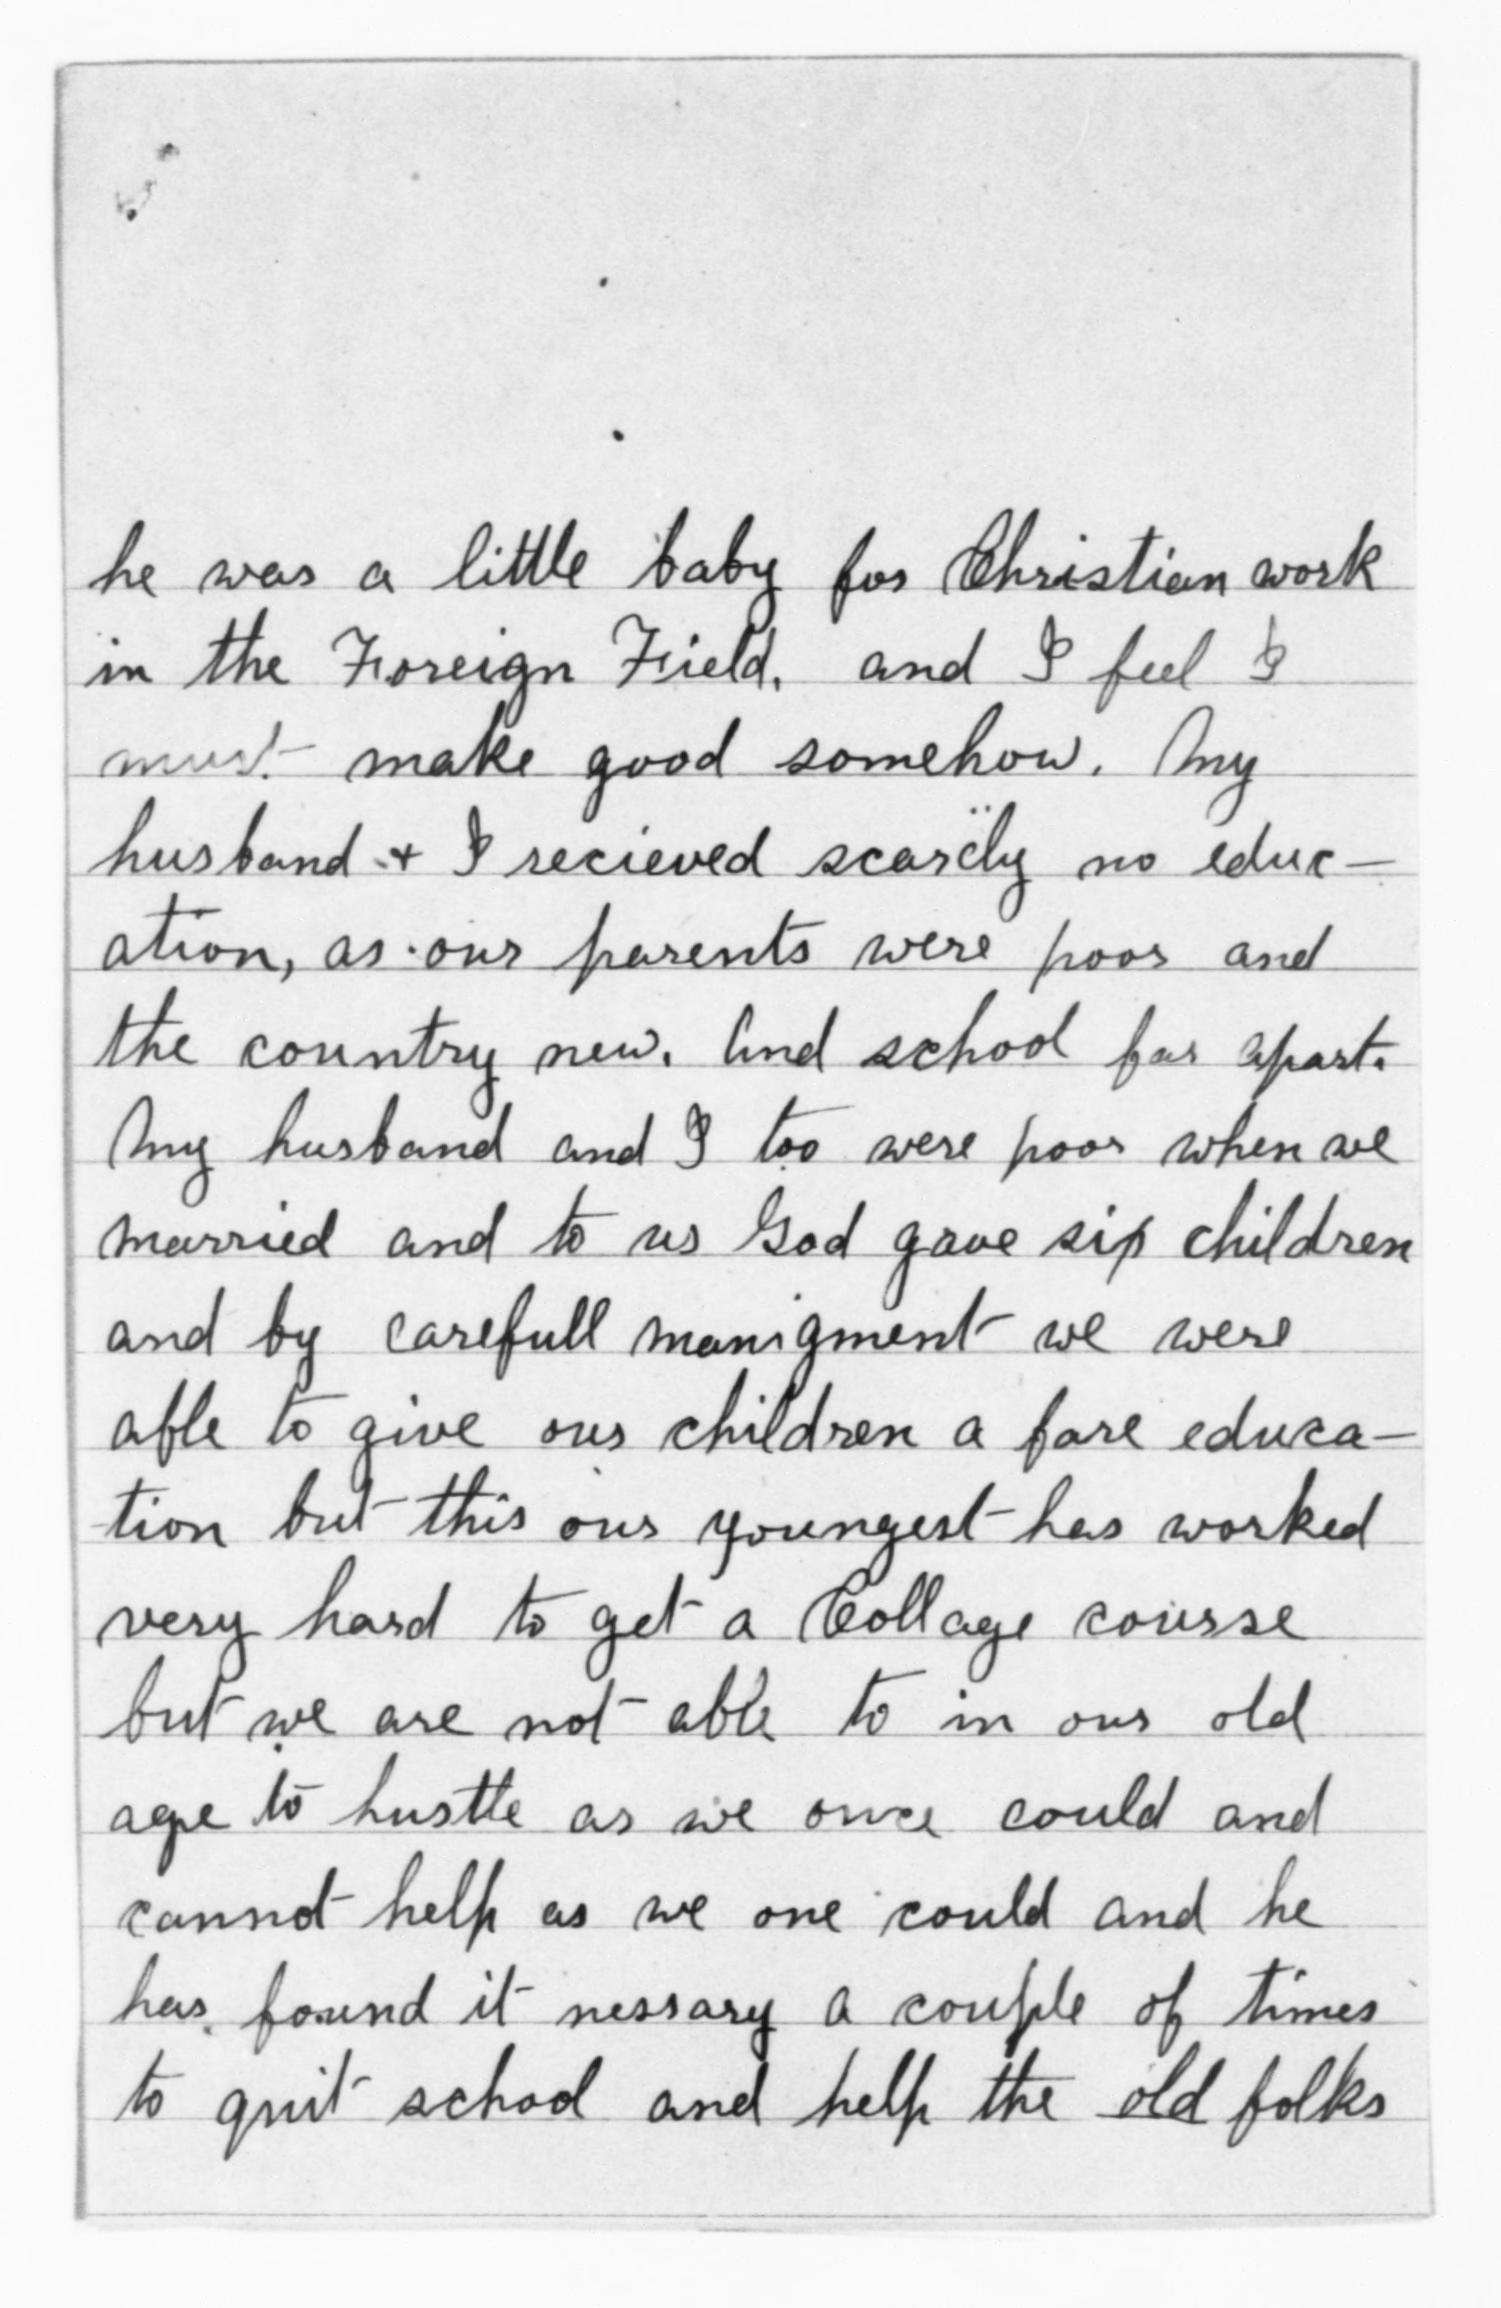 he was a little baby for Christian work
in the Foreign Field. and I feel I
must make good somehow. My
husband + I recieved scarcly no educ-
ation, as our parents were poor and
the country new. And school far apart.
My husband and I too were poor when we
married and to us God gave six children
and by carefull manigment we were
able to give our children a fare educa-
tion but this our youngest has worked
very hard to get a Collage course
but we are not able to in our old
age to hustle as we once could and
cannot help as we one could and he
has found it nessary a couple of times
to quit school and help the old folks